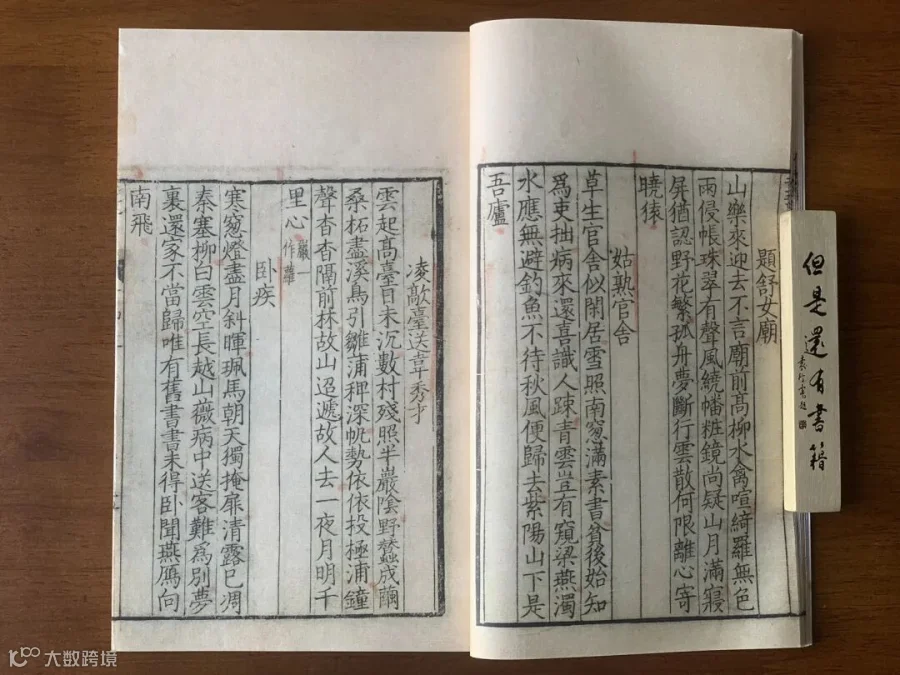 題舒女廟
山樂來迎去不言廟前髙柳水禽喧綺羅無色
雨侵帳珠翠有聲風繞幡粧鏡尚疑山月滿寢
屏猶認野花繁孤舟夢斷行雲散何限離心寄
曉猿
姑熟官舍
草生官舍似閑居雪照南窓滿素書貧後始知
爲吏拙病來還喜識人踈青雲豈有窺梁燕濁
水應無避釣魚不待秋風便歸去紫陽山下是
吾廬
凌歊臺送韋秀才
雲起髙臺日未沉數村殘照半巖陰野蠶成繭
桑柘盡溪鳥引雛蒲稗深帆勢依依投極浦鐘
聲杳杳隔前林故山迢遞故人去一夜月明千
里心 巖一作
卧疾
寒窓燈盡月斜暉珮馬朝天獨掩扉清露已凋
秦塞柳白雲空長越山薇病中送客難爲別夢
裏還家不當歸唯有舊書書未得卧聞燕鴈向
南飛
但是還有書籍
袁行霈題
大数跨境